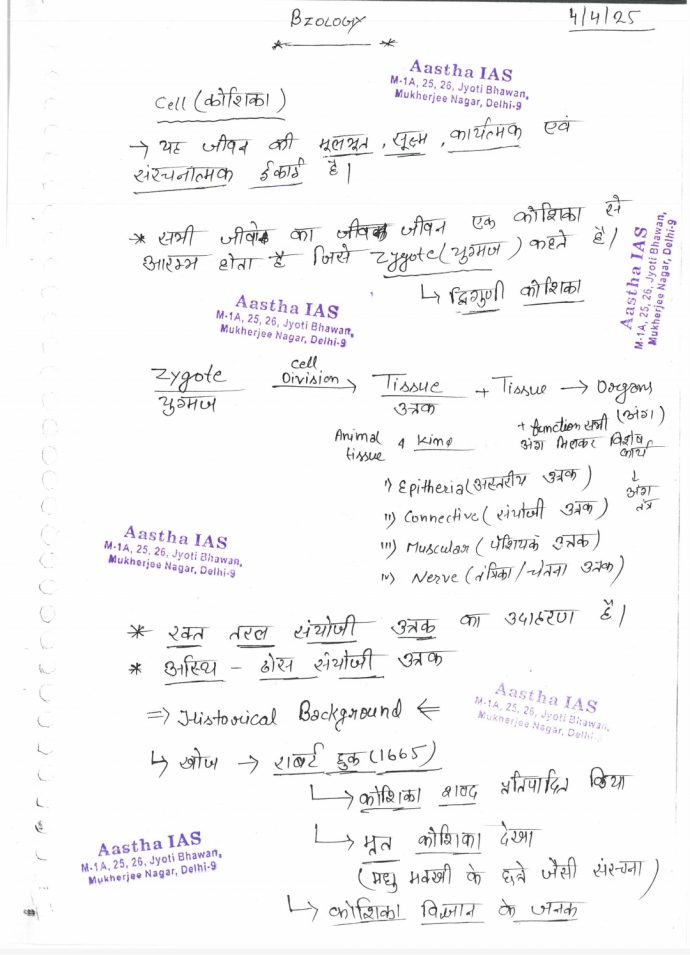 BIOLOGY
4/4/25
Aastha IAS
M-1A, 25, 26, Jyoti Bhawan,
Mukherjee Nagar, Delhi-9
Cell (कोशिका)
→ यह जीवन की मूलभूत, सूक्ष्म, कार्यात्मक एवं
संरचनात्मक ईकाई है।
* सभी जीवो का जीवन एक कोशिका से
आरम्भ होता है जिसे Zygote (युग्मज) कहते है।
↳ द्विगुणी कोशिका
Aastha IAS
M-1A, 25, 26, Jyoti Bhawan,
Mukherjee Nagar, Delhi-9
Aastha IAS
M-1A, 25, 26, Jyoti Bhawan,
Mukherjee Nagar, Delhi-9
Cell
Zygote Division → Tissue + Tissue → Oorgans
युग्मज उत्तक (अंग)
+ function सभी
अंग मिलकर विशेष
कार्य
↓
अंग
तंत्र
Animal 4 Kind
tissue
i) Epitheria (अस्तरीय उत्तक)
ii) Connective (संयोजी उत्तक)
iii) Muscular (पेशियक उत्तक)
iv) Nerve (तंत्रिका/चेतना उत्तक)
Aastha IAS
M-1A, 25, 26, Jyoti Bhawan,
Mukherjee Nagar, Delhi-9
* रक्त तरल संयोजी उत्तक का उदाहरण है।
* अस्थि - ठोस संयोजी उत्तक
Aastha IAS
M-1A, 25, 26, Jyoti Bhawan,
Mukherjee Nagar, Delhi-
⇒ Historical Background ⇐
↳ खोज → राबर्ट हुक (1665)
↳ कोशिका शब्द प्रतिपादित किया
↳ मृत कोशिका देखा
(मधु मक्खी के छत्ते जैसी संरचना)
↳ कोशिका विज्ञान के जनक
Aastha IAS
M-1A, 25, 26, Jyoti Bhawan,
Mukherjee Nagar, Delhi-9